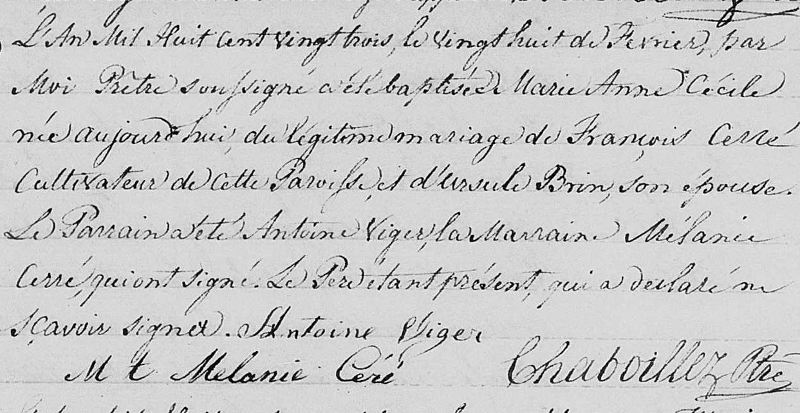 L'An Mil Huit Cent vingt trois, le vingt huit de Fevrier, par
Moi Prêtre soussigné a été baptisée Marie Anne Cécile
née aujourd'hui, du légitime mariage de François Cerré
Cultivateur de cette Paroisse, et d'Ursule Brin, son épouse.
Le Parrain a été Antoine Viger, la Marraine Mélanie
Cerré, qui ont signé. Le Pere etant présent, qui a declaré ne
sçavoir signer. Antoine Viger
M t Melanie Céré Chaboillez Ptre